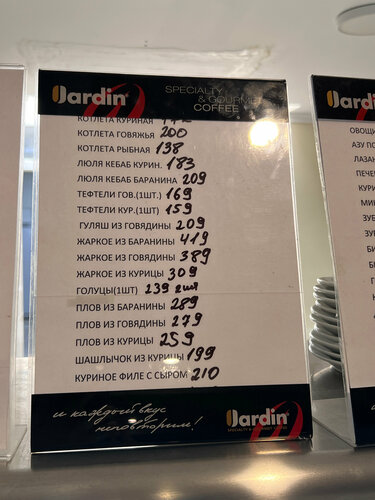 Jardin®
SPECIALTY
& GOURMET
COFFEE
КОТЛЕТА КУРИНАЯ
КОТЛЕТА ГОВЯЖЬЯ 200
КОТЛЕТА РЫБНАЯ 138
ЛЮЛЯ КЕБАБ КУРИН. 183
ЛЮЛЯ КЕБАБ БАРАНИНА 209
ТЕФТЕЛИ ГОВ.(1ШТ.) 169
ТЕФТЕЛИ КУР.(1ШТ) 159
ГУЛЯШ ИЗ ГОВЯДИНЫ 209
ЖАРКОЕ ИЗ БАРАНИНЫ 419
ЖАРКОЕ ИЗ ГОВЯДИНЫ 389
ЖАРКОЕ ИЗ КУРИЦЫ 309
ГОЛУЦЫ(1ШТ) 239 2шт
ПЛОВ ИЗ БАРАНИНЫ 289
ПЛОВ ИЗ ГОВЯДИНЫ 279
ПЛОВ ИЗ КУРИЦЫ 259
ШАШЛЫЧОК ИЗ КУРИЦЫ 199
КУРИНОЕ ФИЛЕ С СЫРОМ 210
и каждый вкус
неповторим!
Jardin®
SPECIALTY & GOURMET COFFEE
ОВОЩИ
АЗУ ПО
ЛАЗАН
ПЕЧЕ
КУРИ
МИ
ЗУБ
ЗУ
БИ
Б